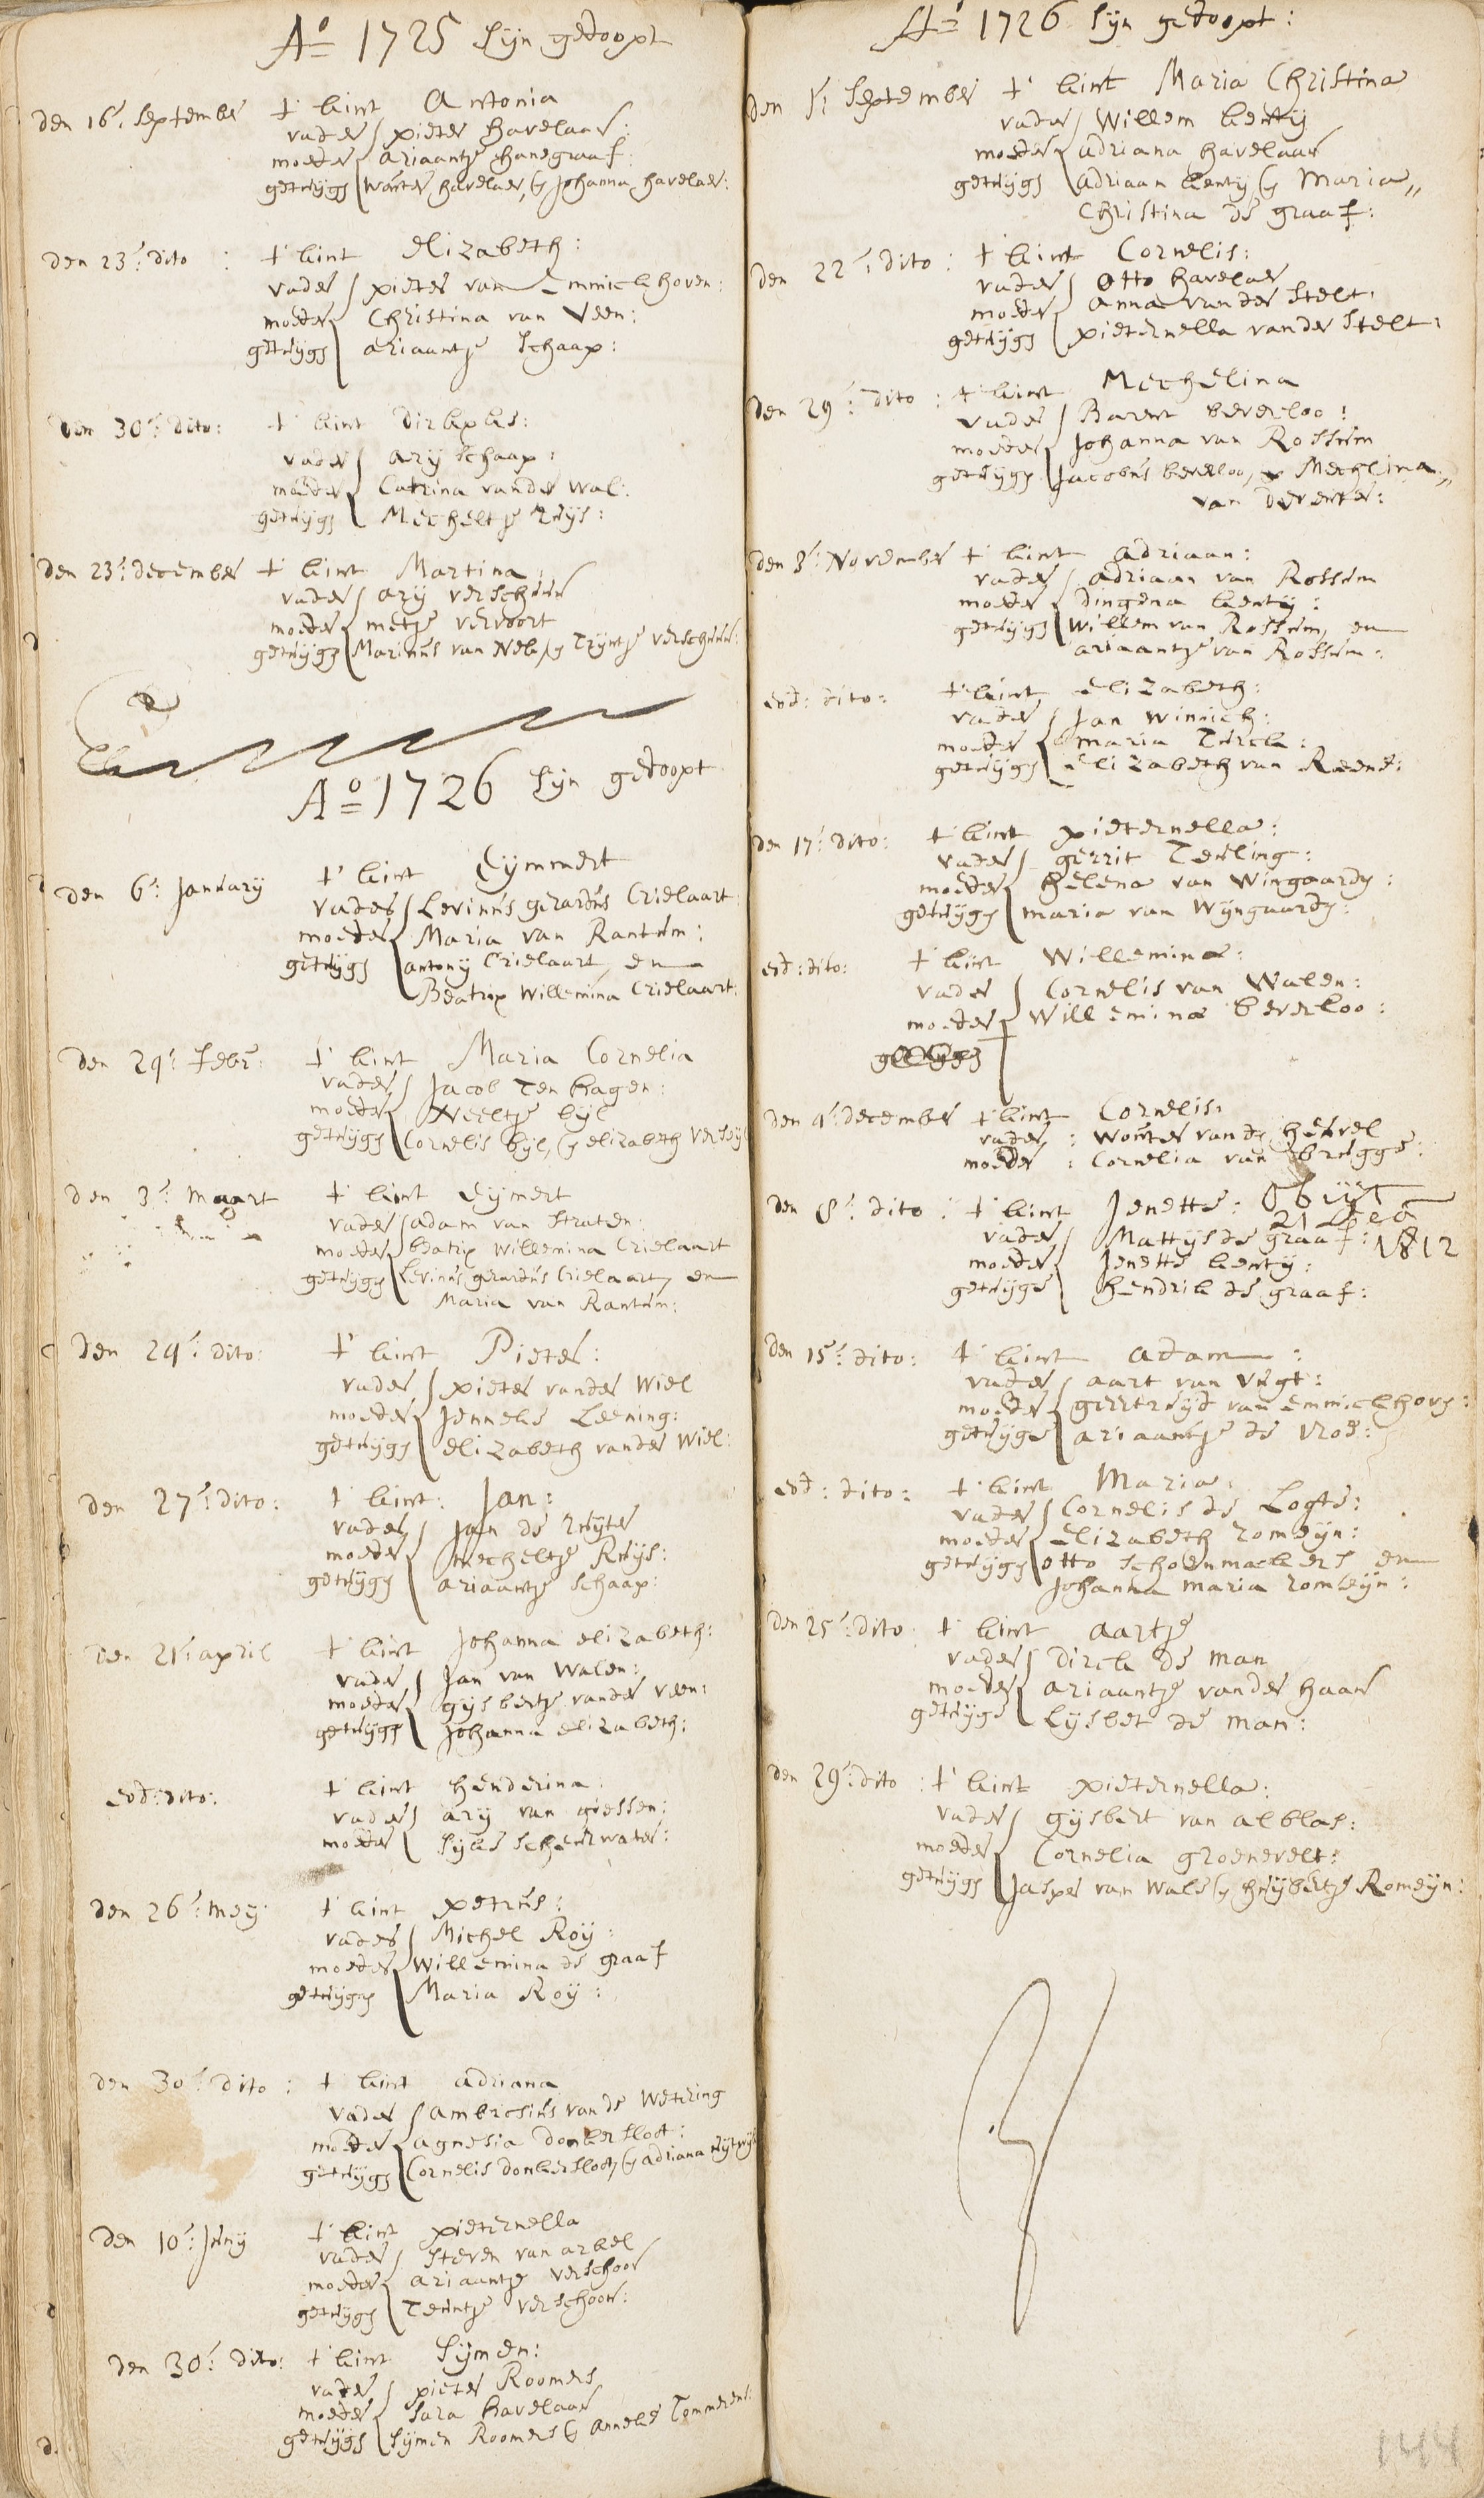 Aº 1725 sijn gedoopt
den 16: september t' kint Antonia
vader pieter havelaar:
moeder ariaantje hanegraaf:
getuijgs wouter havelaer, & Johanna havelaer:
den 23: dito : t' kint elizabeth:
vader pieter van Emmickhoven:
moeder Christina van Veen:
getuijgs ariaantje schaap:
den 30: dito: t' kint dirkxks:
vader arij schaap:
moeder Catrina vander wal:
getuijgs Mecheltje Ruijs:
den 23: december t' kint Martina
vader arij verschuur
moeder metje vervoort
getuijgs Marinus van Nek, & Trijntje verschuur:
Aº 1726 sijn gedoopt
den 6: January t' kint Eymmert
vader Levinus gerardus Crielaart
moeder Maria van Rantum:
getuijgs antonij Crielaart, en
Beatrix Willemina Crielaart:
den 24: febr: t' kint Maria Cornelia
vader Jacob Ten hagen:
moeder Neeltje bijl
getuijgs Cornelis bijl, & elizabeth Versij
den 3: maart t' kint Eijmert
vader adam van straten:
moeder beatrix willemina Crielaart
getuijgs Levinus gerardus Crielaart, en
Maria van Rantum:
den 24: dito: t' kint Pieter:
vader pieter vander Wiel
moeder Jenneke Leening:
getuijgs elizabeth vander Wiel:
den 27: dito: t' kint: Jan:
vader Jan de ruijter
moeder mecheltje Ruijs:
getuijgs ariaantje schaap:
den 21: april t' kint Johanna elizabeth:
vader Jan van Walen:
moeder gijsbertje vander veen:
getuijgs Johanna elizabeth:
eod: dito: t' kint henderina
vader arij van giessen:
moeder sijke scheerwater:
den 26: meij t' kint petrus:
vader Michel Roij:
moeder Willemina de graaf
getuijgs Maria Roij:
den 30: dito: t' kint adriana
vader ambrosius van de Wetering
moeder agnesia donkersloot:
getuijgs Cornelis donkersloot, & adriana
den 10: Junij t' kint pieternella
vader steven van arkel
moeder ariaantje verschoor
getuijgs Teuntje verschoor:
den 30: dito: t' kint sijmen:
vader pieter Roomers
moeder sara havelaar
getuijgs sijmen Roomers & anneke Tommerens:
Aº 1726 sijn gedoopt:
den 1: september t' kint Maria Christina
vader Willem kentij
moeder adriana havelaar
getuijgs adriaan kentij & Maria,,
Christina de graaf:
den 22: dito: t' kint Cornelis:
vader otto havelaer
moeder anna van der stelt:
getuijgs pieternella vander stelt:
den 29: dito: t' kint Mechelina
vader Barent beverloo:
moeder Johanna van Rossum
getuijgs Jacobus beverloo, & Mechlina,,
van deventer:
den 3: November t' kint adriaan:
vader adriaan van Rossum
moeder dingena kentij:
getuijgs willem van Rossum, en
ariaantje van Rossum:
eod: dito: t' kint elizabeth:
vader Jan winnick:
moeder maria Turck:
getuijgs elizabeth van Reene:
den 17: dito: t' kint pieternella:
vader gerrit Teuling:
moeder helena van Wingaarde:
getuijgs maria van Wijngaarde:
eod: dito: t' kint Willemina:
vader Cornelis van Walen:
moeder Willemina beverloo:
getuijgs
den 4: december t' kint Cornelis:
vader: wouter van de heuvel
moeder: Cornelia van brugge:
den 8: dito: t' kint Jenette: Obijt
21 Feb
1812
vader Mattijs de graaf:
moeder Jenette kentij:
getuijgs hendrik de graaf:
den 15: dito: t' kint adam:
vader aart van vugt:
moeder geertruijd van emmickhove:
getuijgs ariaantje de vroe:
eod: dito: t' kint Maria:
vader Cornelis de Logte:
moeder elizabeth romeijn:
getuijgs otto schoenmackers en
Johanna maria romeijn:
den 25: dito: t' kint aartje
vader dirck de man
moeder ariaantje vander haar
getuijgs Lijsbet de man:
den 29: dito: t' kint pieternella:
vader gijsbert van alblas:
moeder Cornelia groenevelt:
getuijgs Jasper van Wale & huijbertje Romeijn:
144